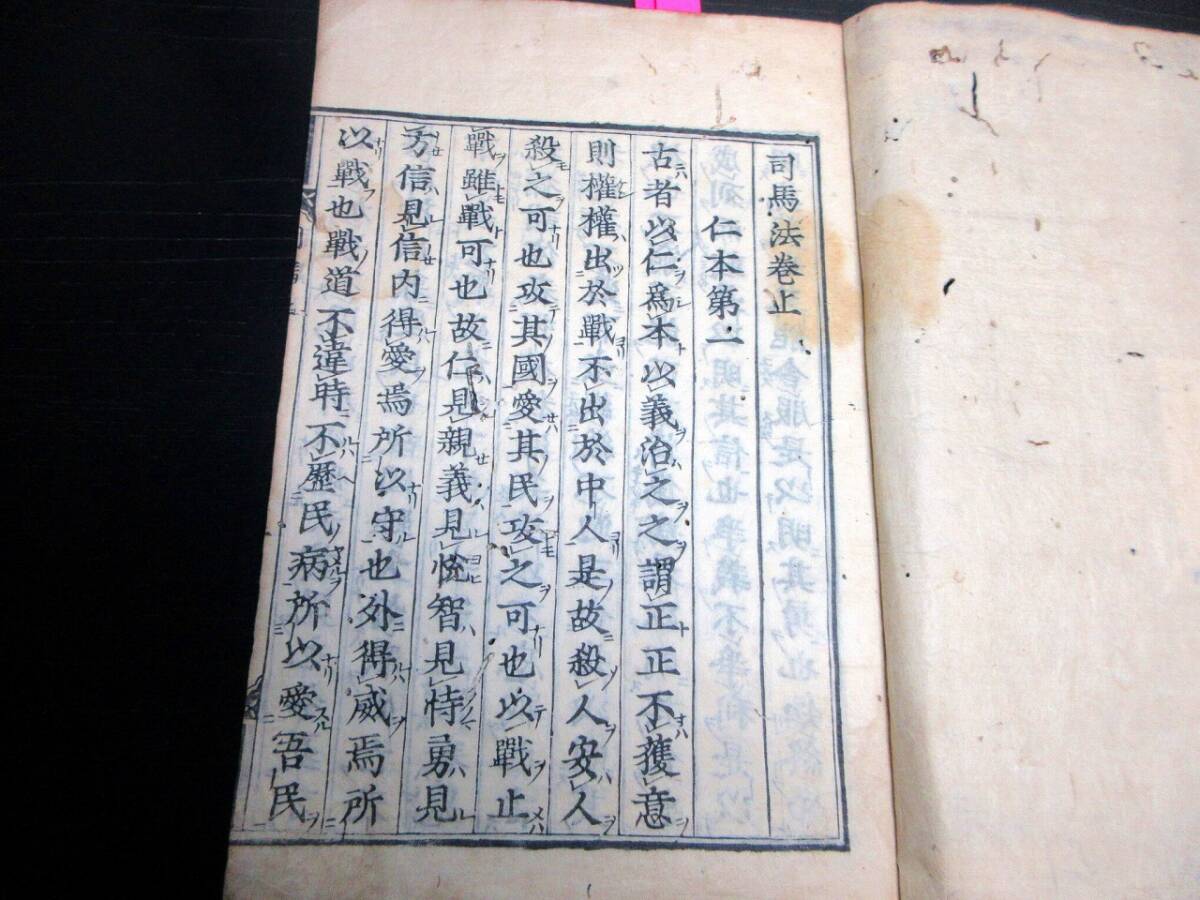 司馬法卷上
仁本第一
古者以仁爲本以義治之之謂正正不獲意
則權權出於戰不出於中人是故殺人安人
殺之可也攻其國愛其民攻之可也以戰止
戰雖戰可也故仁見親義見悅智見恃勇見
方信見信内得愛焉所以守也外得威焉所
以戰也戰道不違時不歷民病所以愛吾民